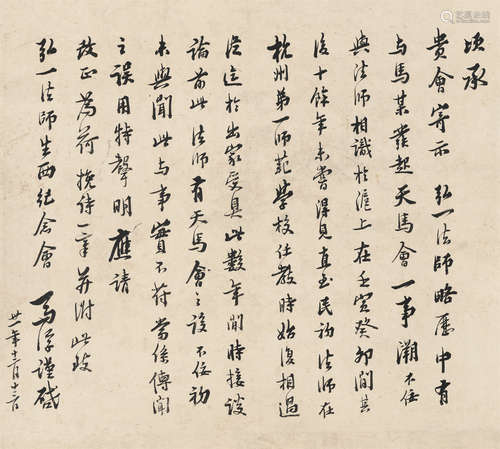 顷承
贵會寄示 弘一法师略歷中有
与馬某發起天馬會一事溯不佞
與法师相識於滬上在壬寅癸卯間其
後十餘年未嘗得見直至民初法师在
杭州第一师範學校任教時始復相過
從迄於出家受具此数年間時接談
論前此法师有天馬會之设不佞初
未與聞此与事實不符當係傳聞
之误用特聲明應請
改正為荷 挽诗一章并附此致
弘一法师生西纪念會 马浮謹啟
卅一年十二月十二日